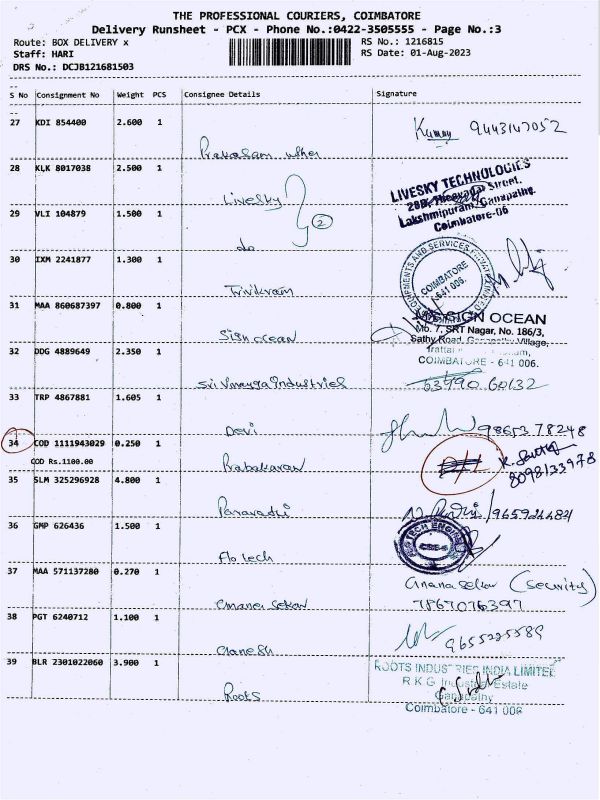 THE PROFESSIONAL COURIERS, COIMBATORE
Delivery Runsheet - PCX - Phone No.:0422-3505555 - Page No.:3
Route: BOX DELIVERY x
RS No.: 1216815
Staff: HARI
RS Date: 01-Aug-2023
DRS No.: DCJB121681503
S No Consignment No Weight PCS Consignee Details Signature
27 KDI 854400 2.600 1
9443147052
Prakasam
28 KLK 8017038 2.500 1
LIVESKY TECHNOLOGIES
Livesky
Street,
Lakshmipuram, Ganapathy,
29 VLI 104879 1.500 1
2
Coimbatore-06
do
30 IXM 2241877 1.300 1
EQUIPMENTS AND SERVICES PRIVATE LIMITED
COIMBATORE
641 006.
Trivikram
31 MAA 860687397 0.800 1
SIGN OCEAN
No. 7, SRT Nagar, No. 186/3,
Sign ocean
Sathy Road, Ganapathy Village,
32 DDG 4889649 2.350 1
COIMBATORE - 641 006.
Sri Vinayaga Industries
33 TRP 4867881 1.605 1
Devi
9865378248
34 COD 1111943029 0.250 1
COD Rs.1100.00
Prabakaran
8098133978
35 SLM 325296928 4.800 1
36 GMP 626436 1.500 1
Flo tech
37 MAA 571137280 0.270 1
Gnana sekar (Security)
Gnana sekar
38 PGT 6240712 1.100 1
9655225589
Ganesh
39 BLR 2301022060 3.900 1
ROOTS INDUSTRIES INDIA LIMITED
R K G Industrial Estate
Ganapathy
Roots
Coimbatore - 641 006